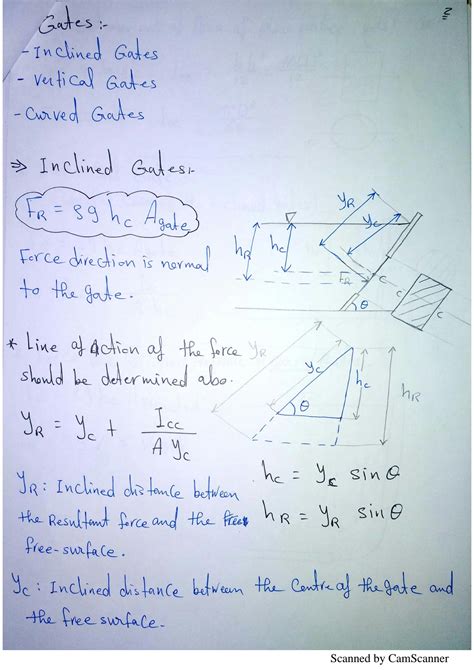 2
Gates:-
- Inclined Gates
- vertical Gates
- Curved Gates
⇒ Inclined Gates:-
F_R = ρg h_c A_gate
Force direction is normal
to the gate.
y_R
y_c
h_R
h_c
F_R
c
c
c
θ
* Line of Action of the force y_R
should be determined also.
y_R = y_c + I_cc / A y_c
y_c
h_c
h_R
θ
h_c = y_c sin θ
h_R = y_R sin θ
y_R : Inclined distance between
the Resultant force and the free
free-surface.
y_c : Inclined distance between the Centre of the gate and
the free surface.
Scanned by CamScanner